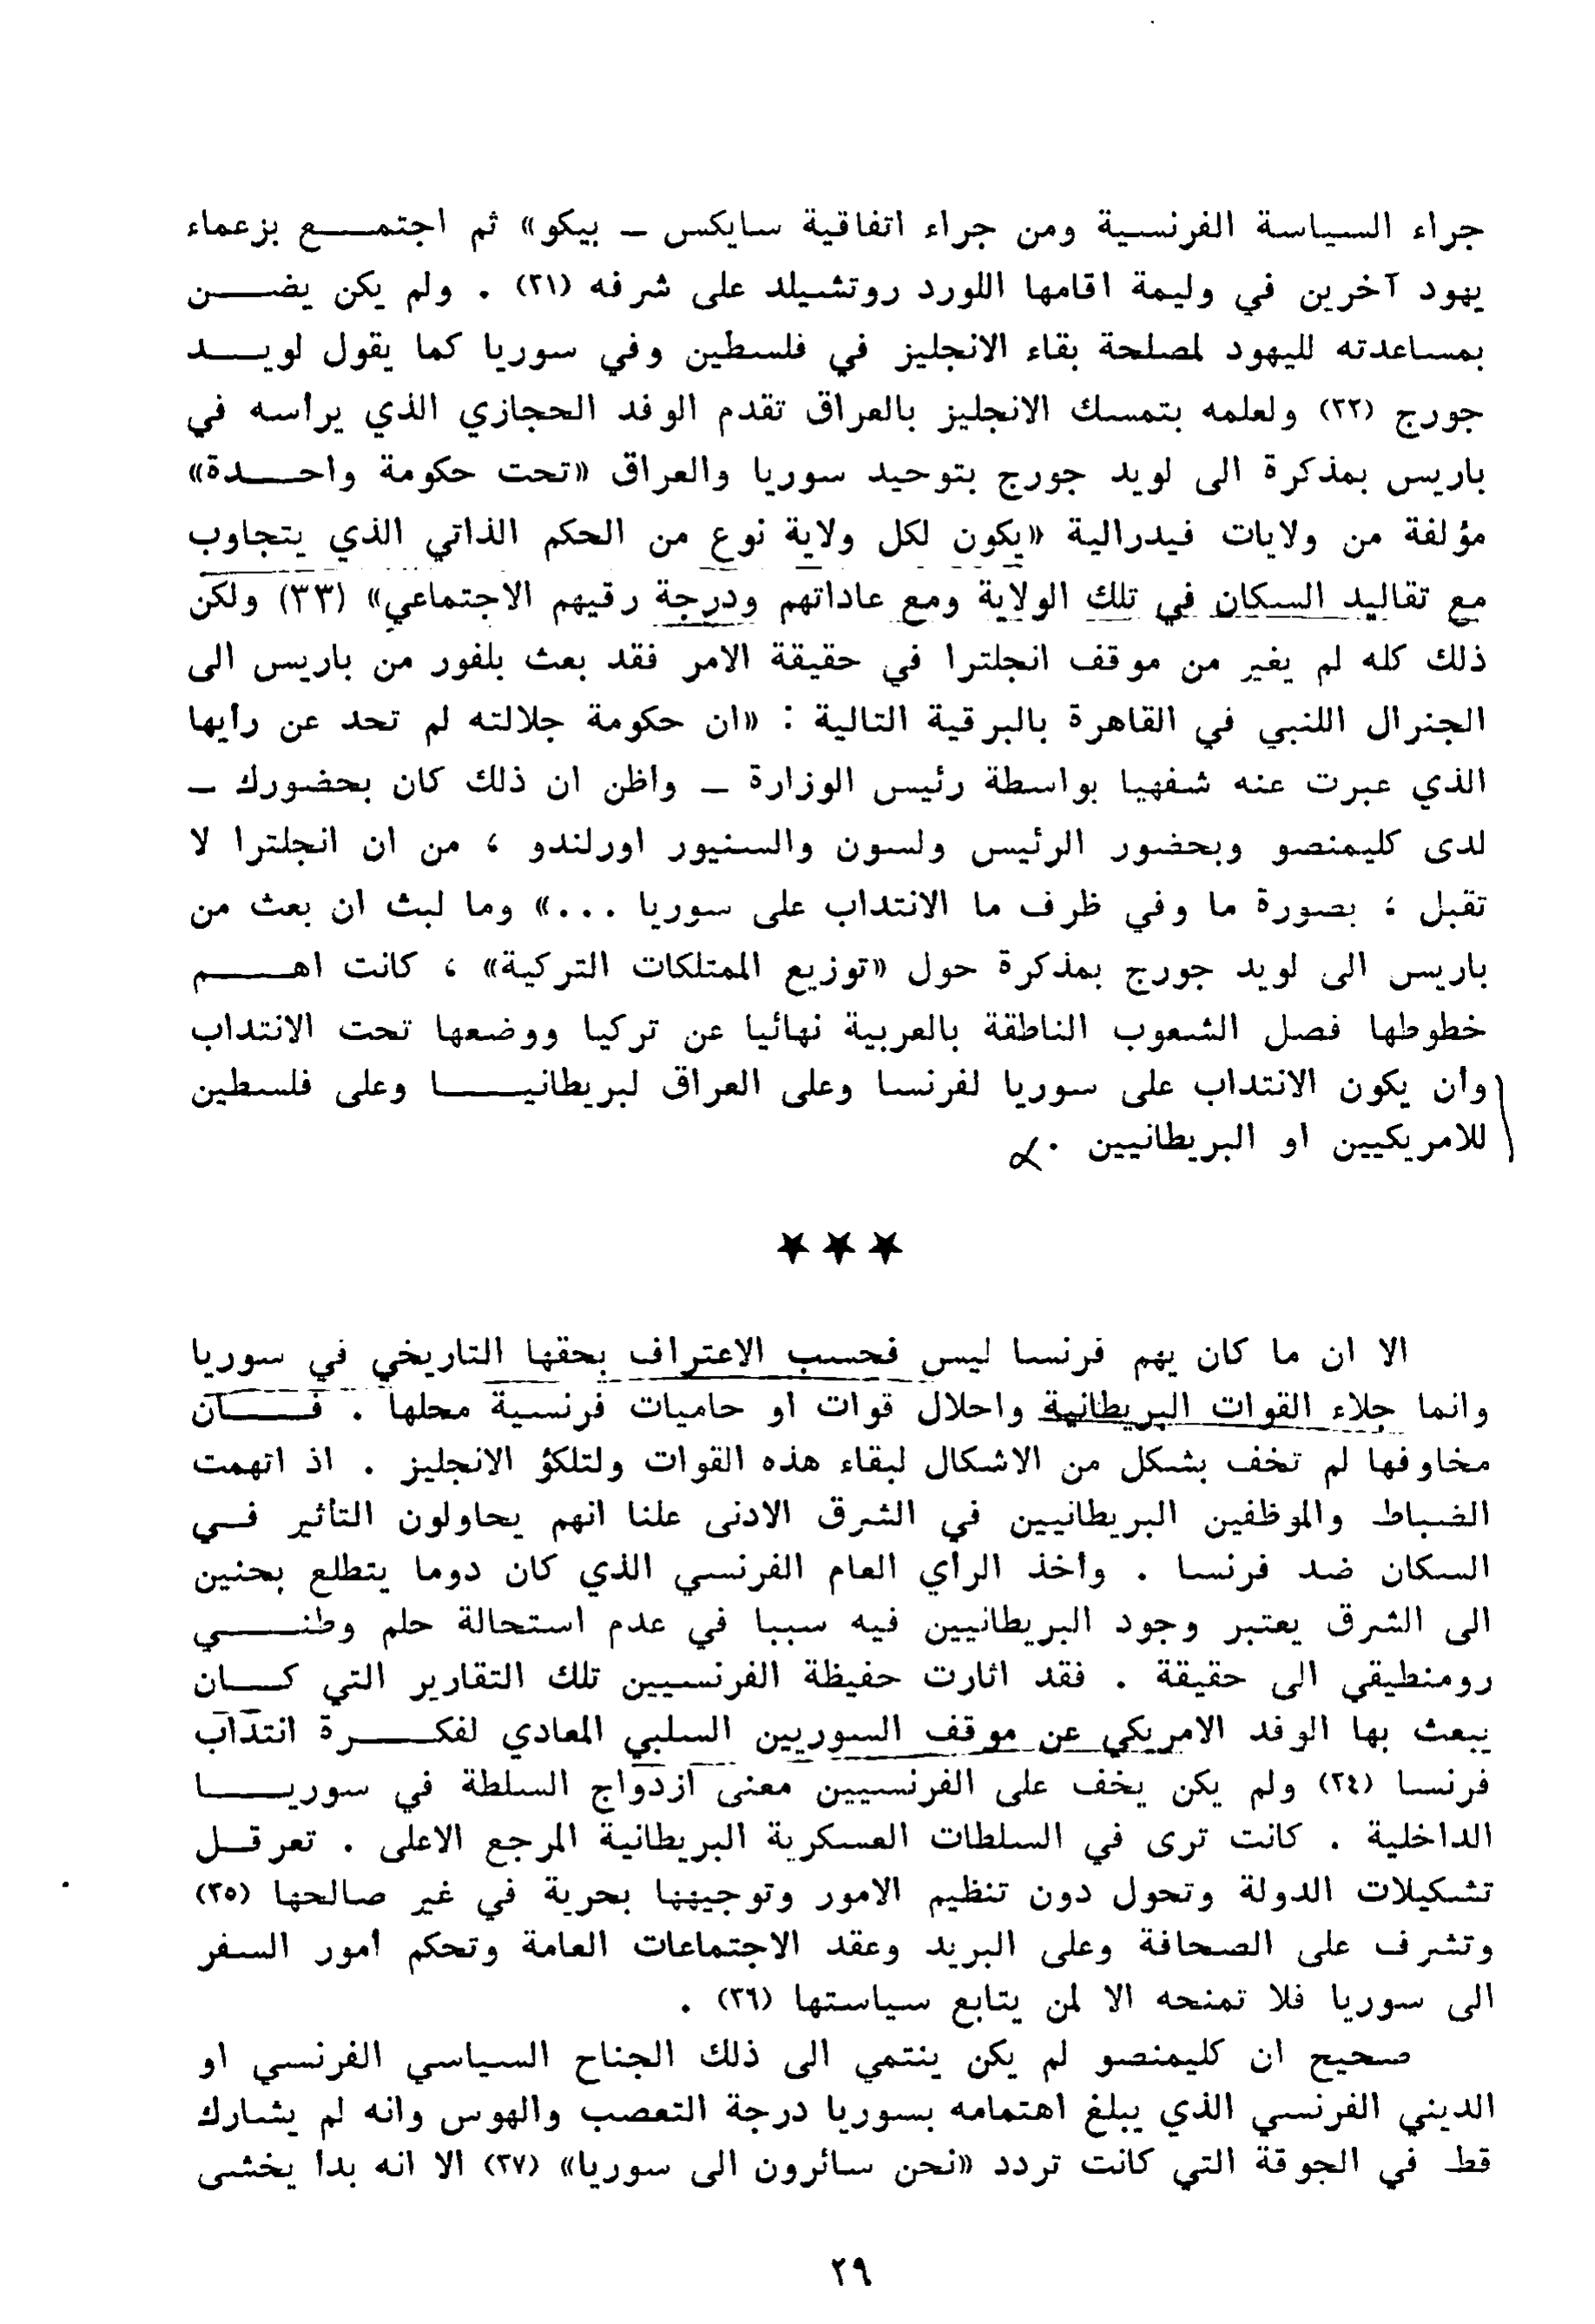 جراء السياسة الفرنسية ومن جراء اتفاقية سايكس – بيكو» ثم اجتمع بزعماء
يهود آخرين في وليمة اقامها اللورد روتشيلد على شرفه (٣١) . ولم يكن يضن
بمساعدته لليهود لمصلحة بقاء الانجليز في فلسطين وفي سوريا كما يقول لويد
جورج (٣٢) ولعلمه بتمسك الانجليز بالعراق تقدم الوفد الحجازي الذي يرأسه في
باريس بمذكرة الى لويد جورج بتوحيد سوريا والعراق «تحت حكومة واحدة»
مؤلفة من ولايات فيدرالية «يكون لكل ولاية نوع من الحكم الذاتي الذي يتجاوب
مع تقاليد السكان في تلك الولاية ومع عاداتهم ودرجة رقيهم الاجتماعي» (٣٣) ولكن
ذلك كله لم يغير من موقف انجلترا في حقيقة الامر فقد بعث بلفور من باريس الى
الجنرال اللنبي في القاهرة بالبرقية التالية : «ان حكومة جلالته لم تحد عن رأيها
الذي عبرت عنه شفهيا بواسطة رئيس الوزارة – واظن ان ذلك كان بحضورك –
لدى كليمنصو وبحضور الرئيس ولسون والسنيور اورلندو ، من ان انجلترا لا
تقبل ، بصورة ما وفي ظرف ما الانتداب على سوريا ...» وما لبث ان بعث من
باريس الى لويد جورج بمذكرة حول «توزيع الممتلكات التركية» ، كانت اهم
خطوطها فصل الشعوب الناطقة بالعربية نهائيا عن تركيا ووضعها تحت الانتداب
وأن يكون الانتداب على سوريا لفرنسا وعلى العراق لبريطانيا وعلى فلسطين
للامريكيين او البريطانيين .
★★★
الا ان ما كان يهم فرنسا ليس فحسب الاعتراف بحقها التاريخي في سوريا
وانما جلاء القوات البريطانية واحلال قوات او حاميات فرنسية محلها . فان
مخاوفها لم تخف بشكل من الاشكال لبقاء هذه القوات ولتلكؤ الانجليز . اذ اتهمت
الضباط والموظفين البريطانيين في الشرق الادنى علنا انهم يحاولون التأثير في
السكان ضد فرنسا . وأخذ الرأي العام الفرنسي الذي كان دوما يتطلع بحنين
الى الشرق يعتبر وجود البريطانيين فيه سببا في عدم استحالة حلم وطني
رومنطيقي الى حقيقة . فقد اثارت حفيظة الفرنسيين تلك التقارير التي كان
يبعث بها الوفد الامريكي عن موقف السوريين السلبي المعادي لفكرة انتداب
فرنسا (٣٤) ولم يكن يخف على الفرنسيين معنى ازدواج السلطة في سوريا
الداخلية . كانت ترى في السلطات العسكرية البريطانية المرجع الاعلى . تعرقل
تشكيلات الدولة وتحول دون تنظيم الامور وتوجيهها بحرية في غير صالحها (٣٥)
وتشرف على الصحافة وعلى البريد وعقد الاجتماعات العامة وتحكم أمور السفر
الى سوريا فلا تمنحه الا لمن يتابع سياستها (٣٦) .
صحيح ان كليمنصو لم يكن ينتمي الى ذلك الجناح السياسي الفرنسي او
الديني الفرنسي الذي يبلغ اهتمامه بسوريا درجة التعصب والهوس وانه لم يشارك
قط في الجوقة التي كانت تردد «نحن سائرون الى سوريا» (٣٧) الا انه بدأ يخشى
٢٩